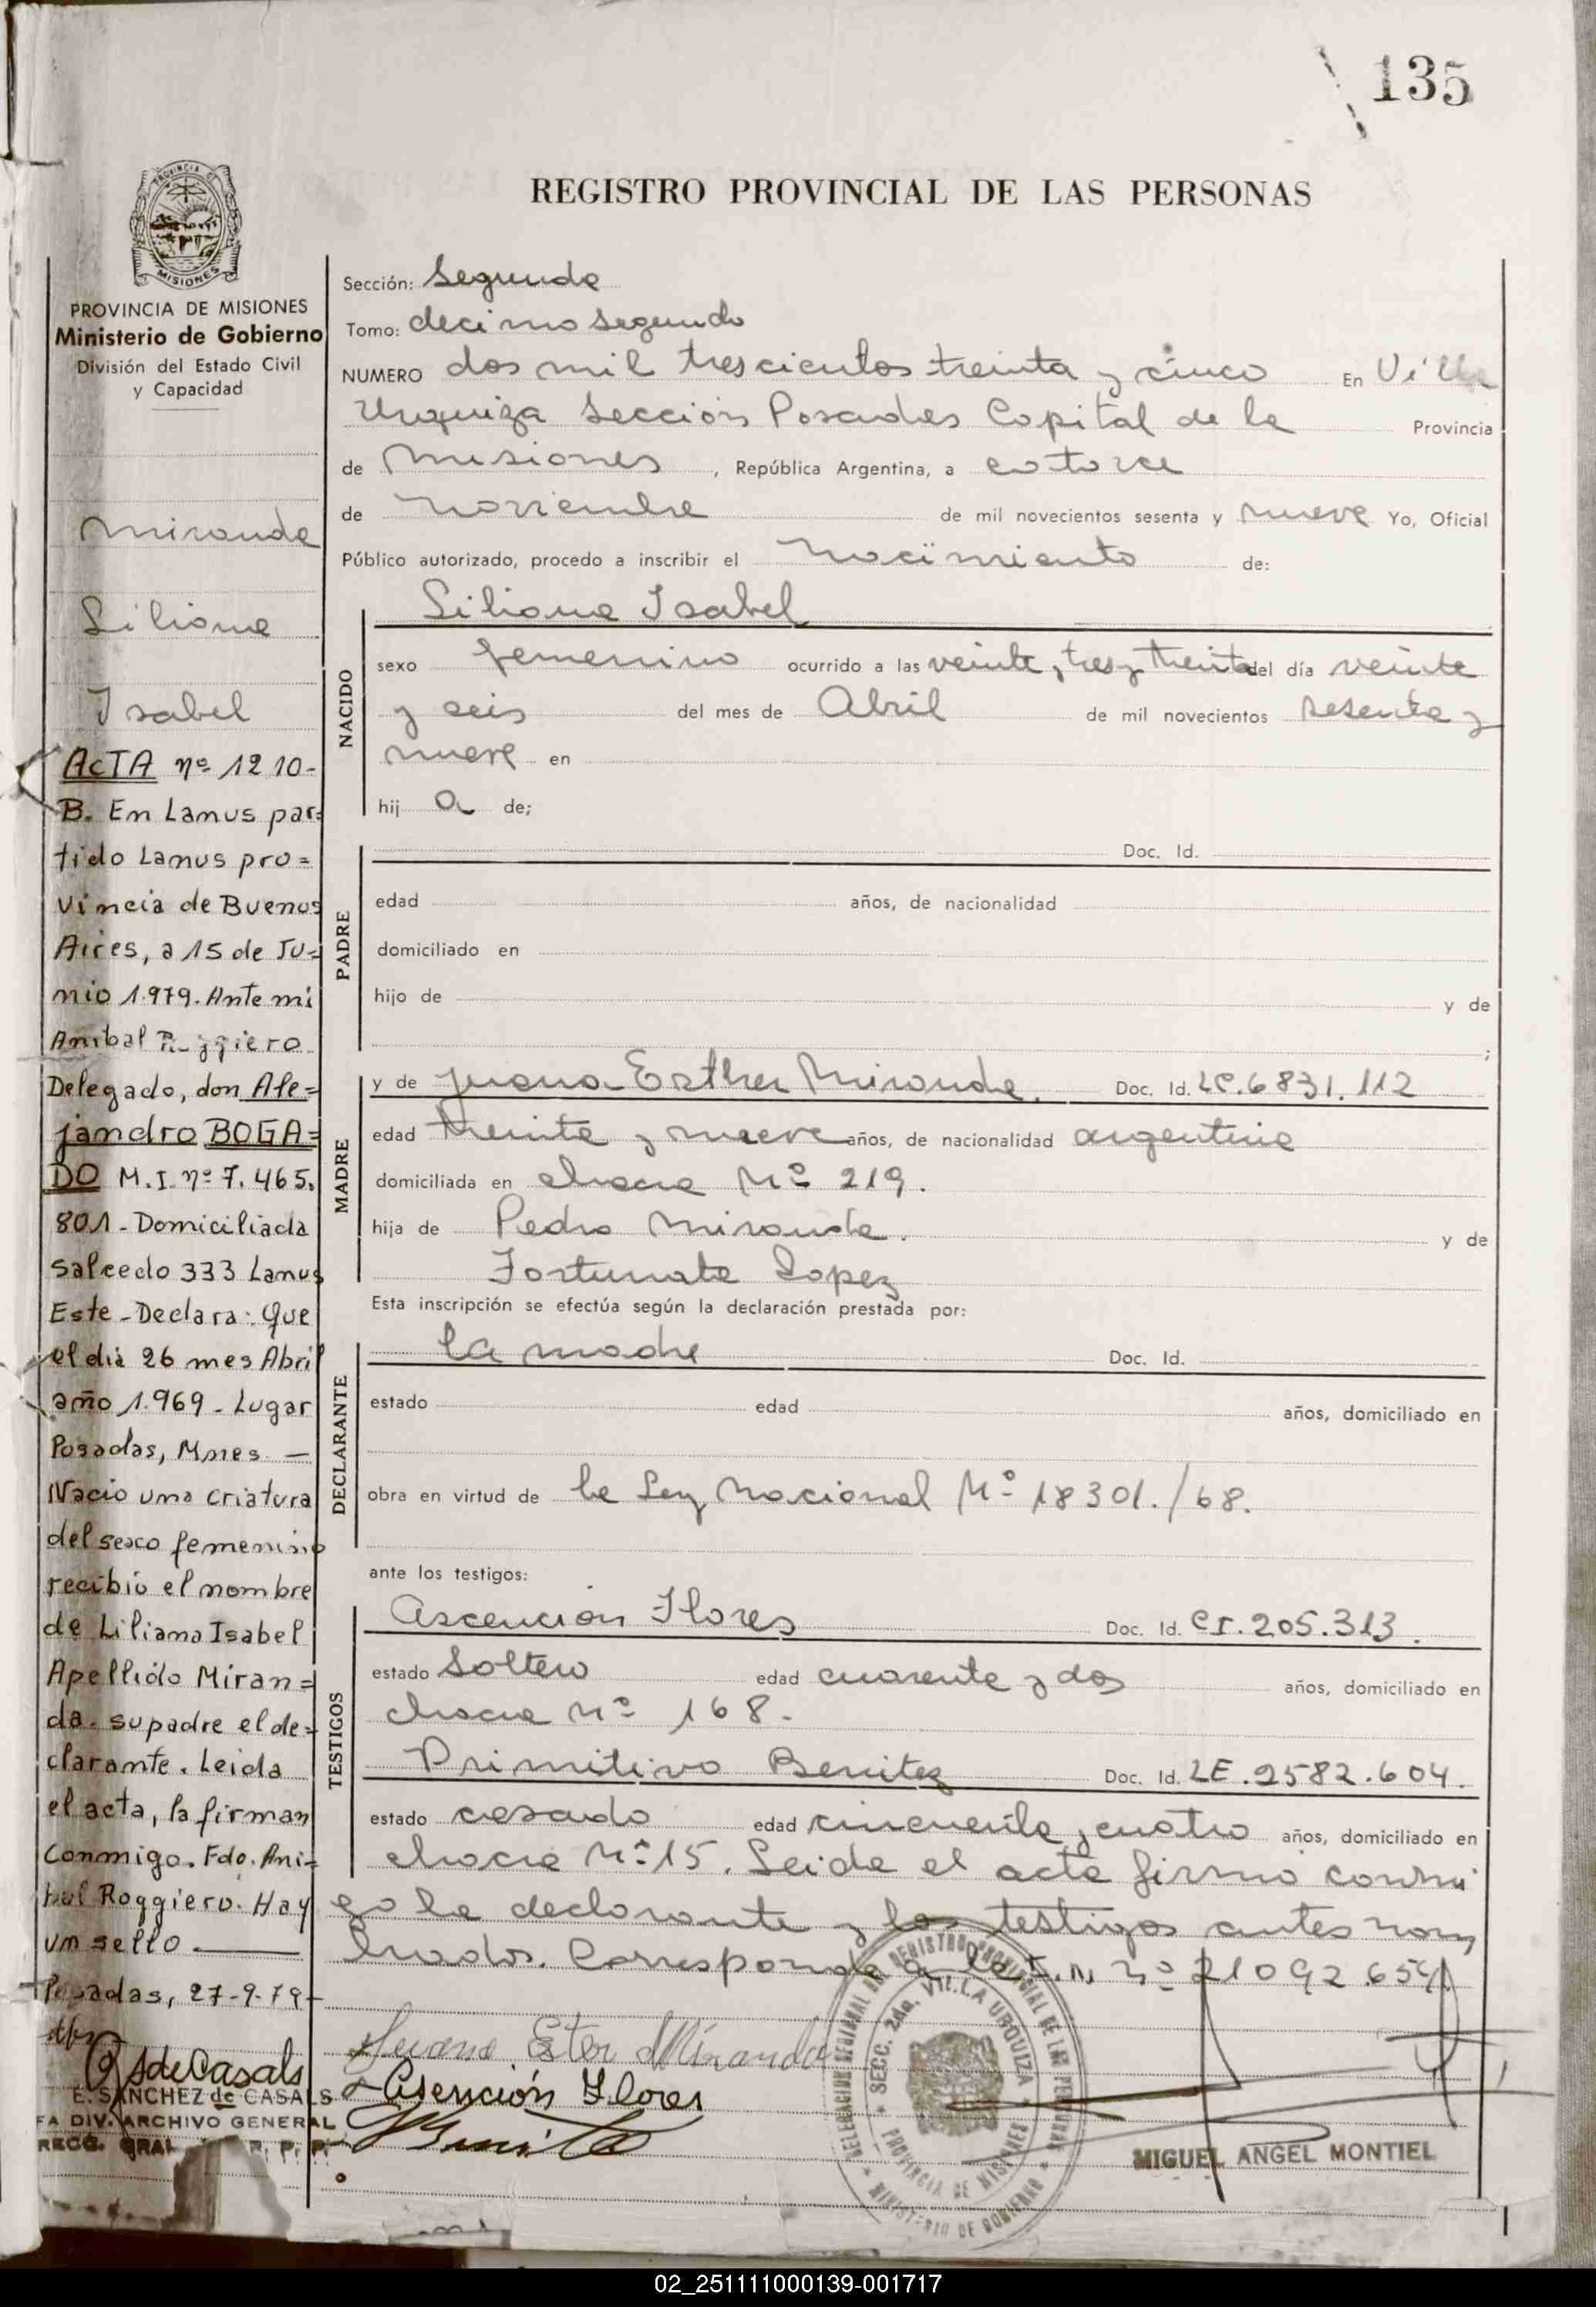 135
REGISTRO PROVINCIAL DE LAS PERSONAS
PROVINCIA DE MISIONES
PROVINCIA DE MISIONES
Ministerio de Gobierno
División del Estado Civil
y Capacidad
Miranda
Liliana
Isabel
ACTA nº 1210-
B. En Lanus par=
tido Lanus pro=
vincia de Buenos
Aires, a 15 de Ju=
nio 1.979. Ante mi
Anibal Roggiero
Delegado, don Ale=
jandro BOGA=
DO M.I. nº 7.465.
801 - Domiciliada
Salcedo 333 Lanus
Este - Declara: Que
el dia 26 mes Abril
año 1.969 - Lugar
Posadas, Mnes. —
Nacio una criatura
del sexo femenino
recibio el nombre
de Liliana Isabel
Apellido Miran=
da. su padre el de=
clarante. Leida
el acta, la firman
Conmigo. Fdo. Ani=
bal Roggiero. Hay
un sello.
Posadas, 27-9-79-
E. SANCHEZ de CASALS
FA DIV. ARCHIVO GENERAL
Sección: Segunda
Tomo: decimo segundo
NUMERO dos mil trescientos treinta y cinco En Villa
Urquiza Sección Posadas Capital de la Provincia
de Misiones, República Argentina, a catorce
de noviembre de mil novecientos sesenta y nueve Yo, Oficial
Público autorizado, procedo a inscribir el nacimiento de:
NACIDO
Liliana Isabel
sexo femenino ocurrido a las veinte y tres y treinta del día veinte
y seis del mes de Abril de mil novecientos sesenta y
nueve en
hij a de;
PADRE
Doc. Id.
edad años, de nacionalidad
domiciliado en
hijo de y de
;
MADRE
y de Juana Esther Miranda. Doc. Id. LC.6831.112
edad treinta y nueve años, de nacionalidad argentina
domiciliada en chacra Nº 219.
hija de Pedro Miranda. y de
Fortunata Lopez
Esta inscripción se efectúa según la declaración prestada por:
DECLARANTE
la madre Doc. Id.
estado edad años, domiciliado en
obra en virtud de la Ley Nacional Nº 18301./68.
ante los testigos:
TESTIGOS
Ascencion Flores Doc. Id. CI.205.313.
estado Soltero edad cuarenta y dos años, domiciliado en
chacra Nº 168.
Primitivo Benitez Doc. Id. LE.2582.604.
estado casado edad cincuenta y cuatro años, domiciliado en
chacra Nº 15. Leida el acta firma conmi
go la declarante y los testigos antes nom
brados. Corresponde a la L.N. Nº 21092.654.
Juana Ester Miranda
Asención Flores
SECC. 2da. VILLA URQUIZA
PROVINCIA DE MISIONES
DELEGACION REGIONAL DEL REGISTRO PROVINCIAL DE LAS PERSONAS
MINISTERIO DE GOBIERNO
MIGUEL ANGEL MONTIEL
02_251111000139-001717